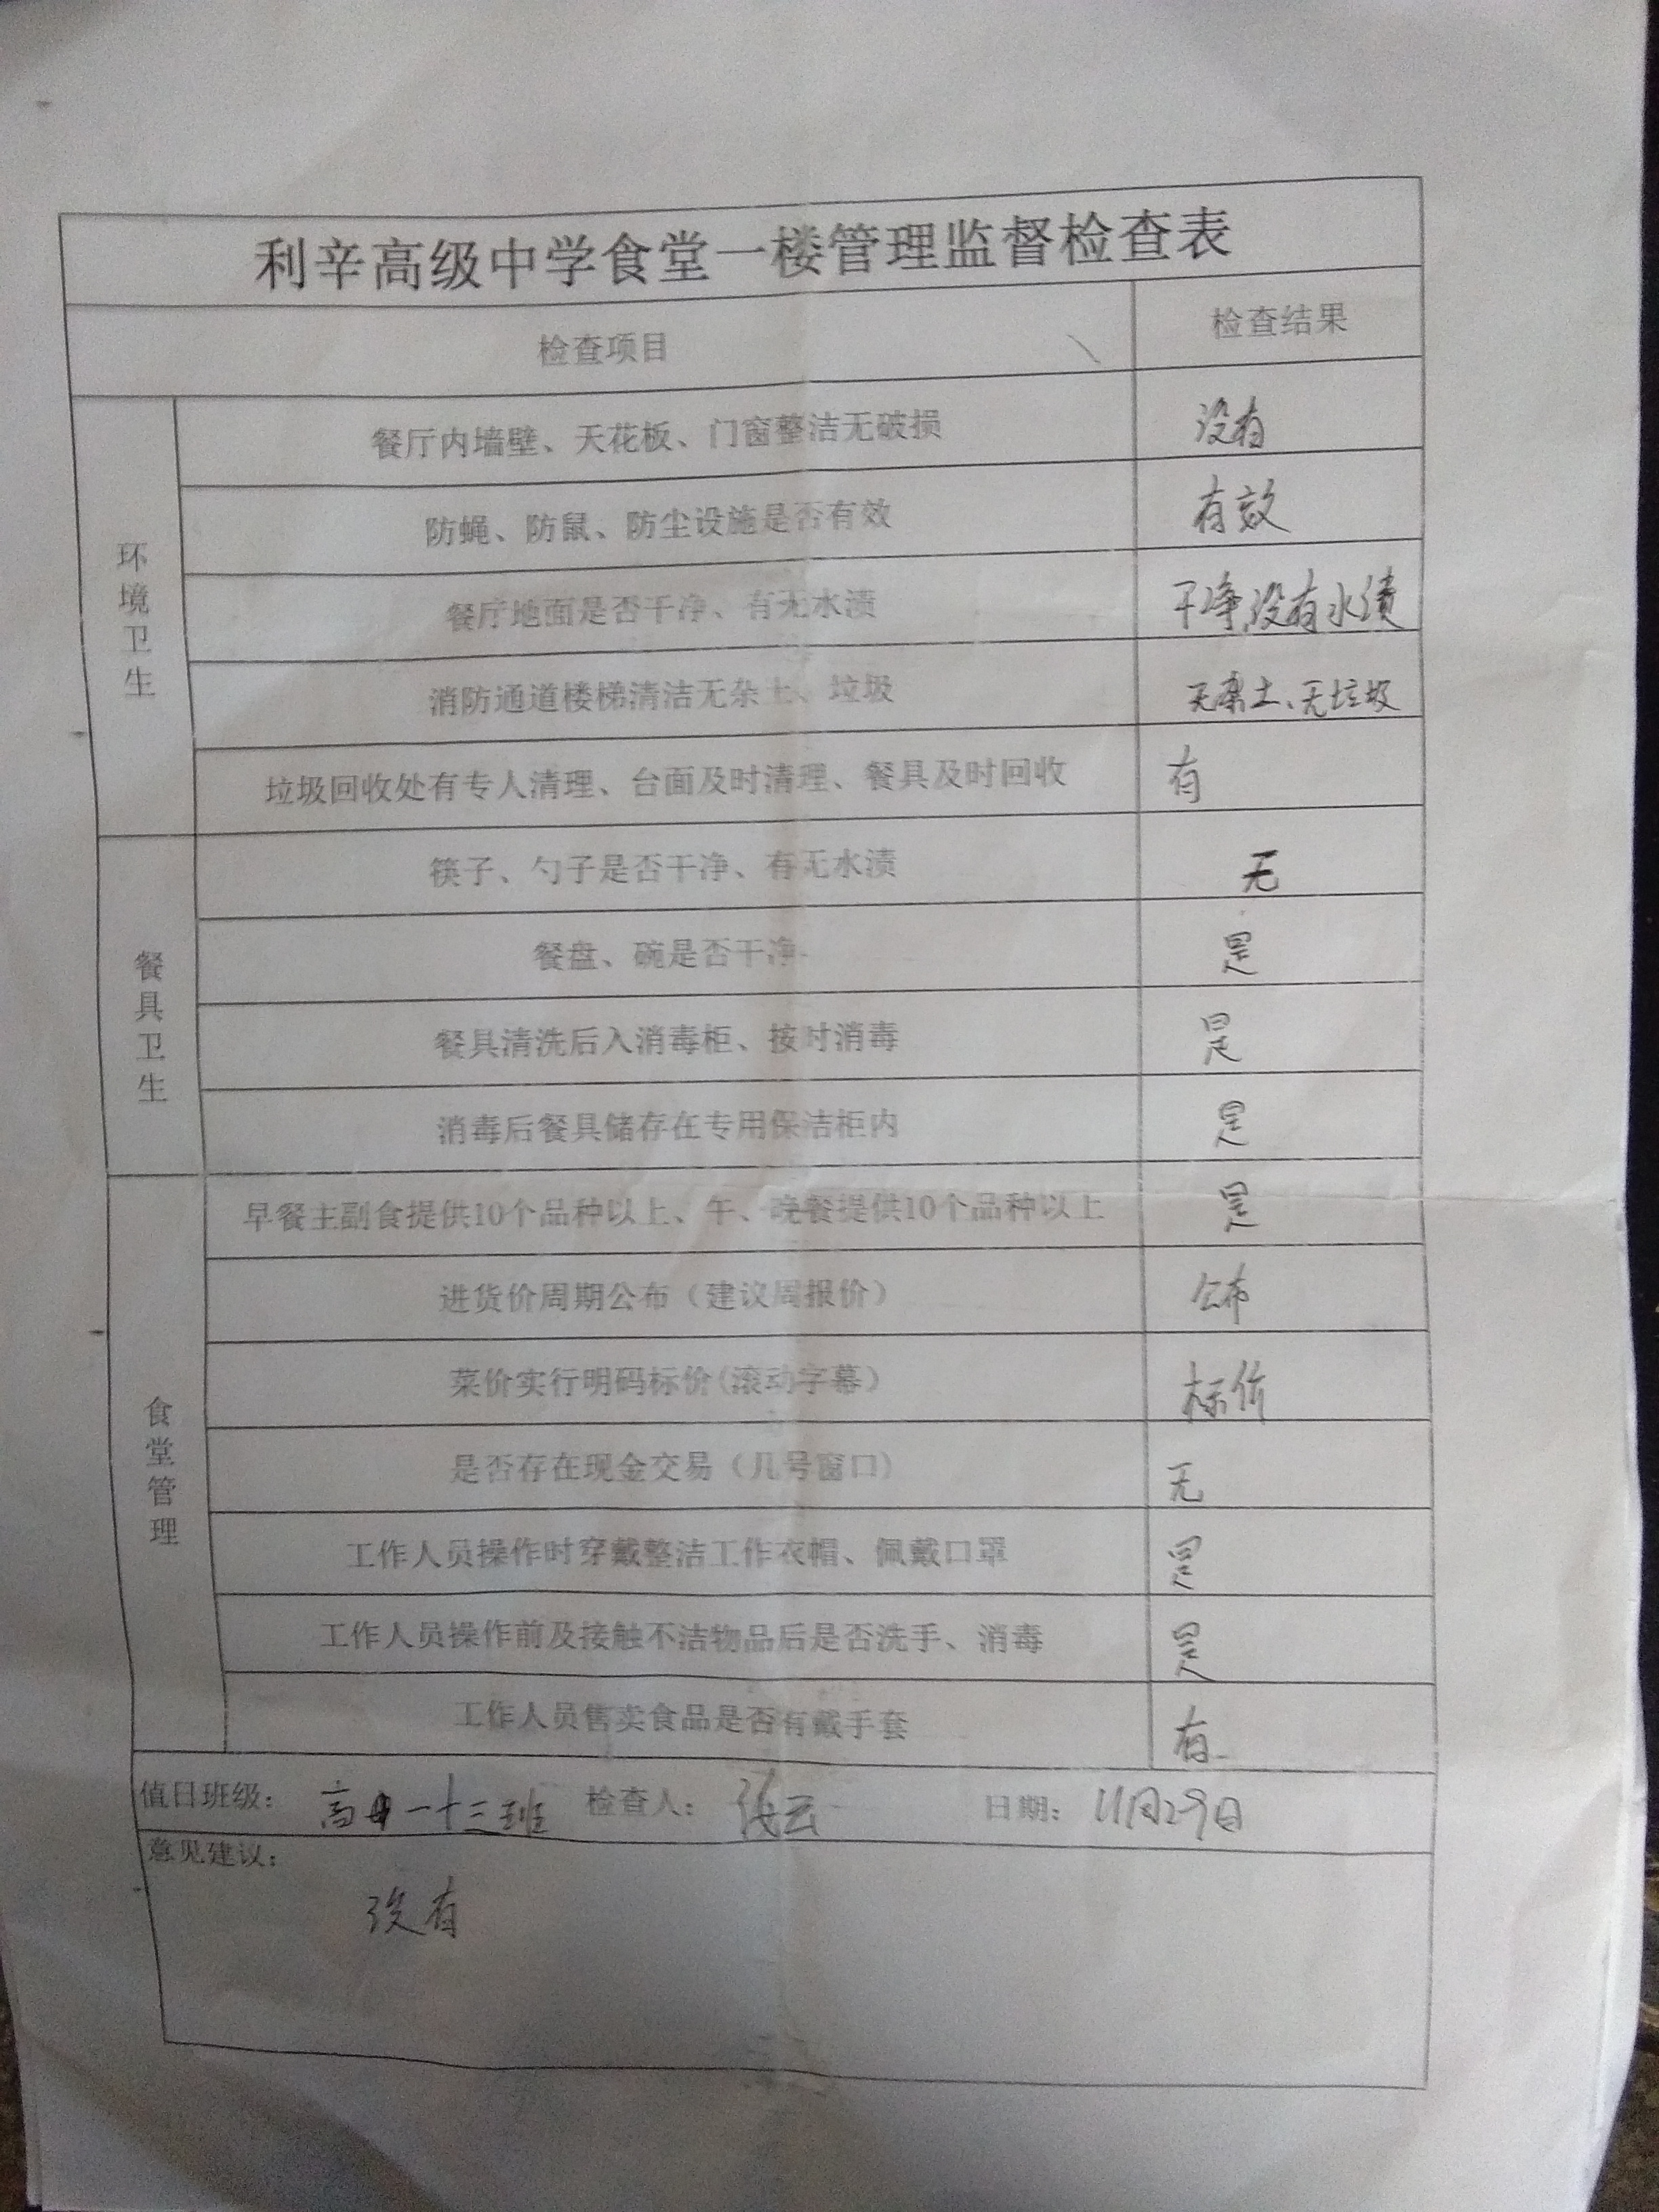 利辛高级中学食堂一楼管理监督检查表
检查项目 检查结果
环境卫生
餐厅内墙壁、天花板、门窗整洁无破损 没有
防蝇、防鼠、防尘设施是否有效 有效
餐厅地面是否干净、有无水渍 干净,没有水渍
消防通道楼梯清洁无杂土、垃圾 无杂土、无垃圾
垃圾回收处有专人清理、台面及时清理、餐具及时回收 有
餐具卫生
筷子、勺子是否干净、有无水渍 无
餐盘、碗是否干净 是
餐具清洗后入消毒柜、按时消毒 是
消毒后餐具储存在专用保洁柜内 是
食堂管理
早餐主副食提供10个品种以上、午、晚餐提供10个品种以上 是
进货价周期公布（建议周报价） 公布
菜价实行明码标价(滚动字幕） 标价
是否存在现金交易（几号窗口） 无
工作人员操作时穿戴整洁工作衣帽、佩戴口罩 是
工作人员操作前及接触不洁物品后是否洗手、消毒 是
工作人员售卖食品是否有戴手套 有
值日班级： 高一十三班 检查人： 张云 日期： 11月29日
意见建议：
没有